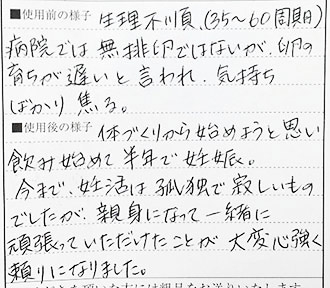 ■使用前の様子 生理不順、(35～60周期)
病院では無排卵ではないが、卵の
育ちが遅いと言われ、気持ち
ばかり焦る。
■使用後の様子 体づくりから始めようと思い
飲み始めて半年で妊娠。
今まで、妊活は孤独で寂しいもの
でしたが、親身になって一緒に
頑張っていただけたことが大変心強く
頼りになりました。